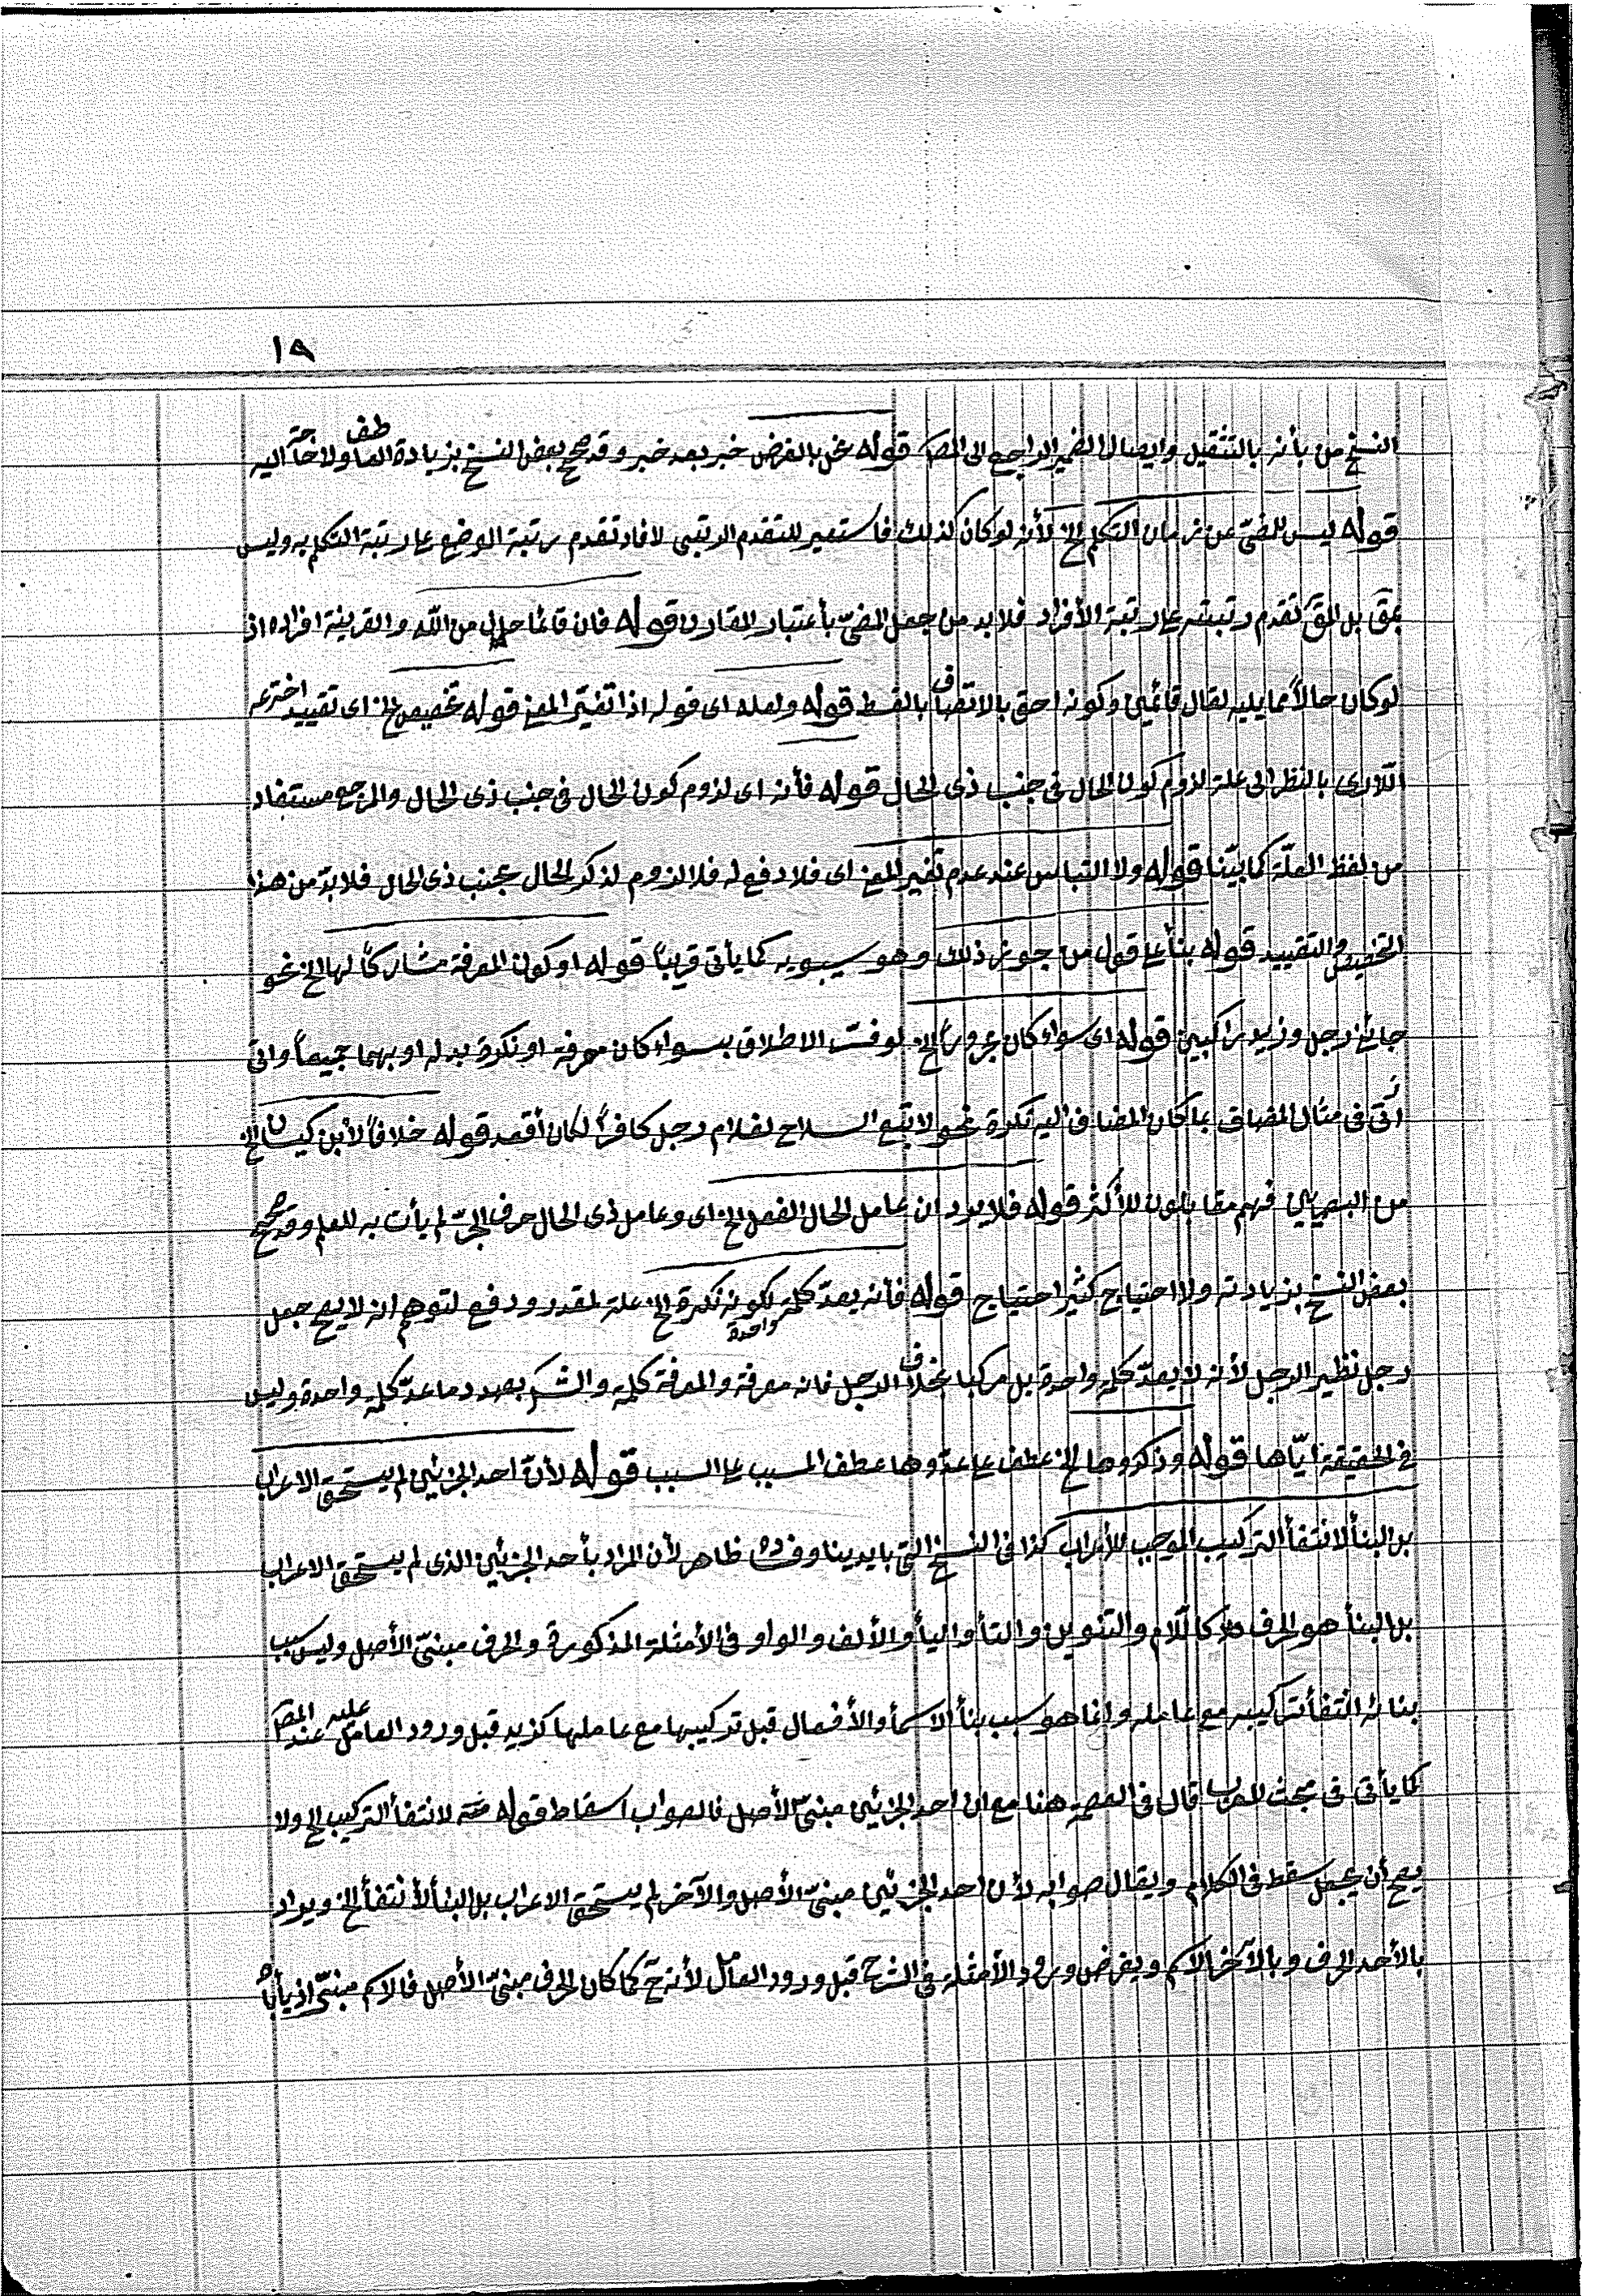 ١٩
النسخ من بأنه بالتثقيل وايصال الضمير الراجع الى المصـ قوله مخل بالغرض خبر بعد خبر وقد صحح بعض النسخ بزيادة العاطف ولا حاجة اليه
قوله ليس للمضىّ عن زمان التكلم الخ لأنه لو كان كذلك فاستعير للتقدم الرتبى لافاد تقدم رتبة الوضع على رتبة التكلم به وليس
بحق بل الحق تقدم رتبته على رتبة الأفراد فلا بد من جعل المضىّ بأعتبار المقارن قوله فان قائما حال من الله والقرينة افراده اذ
لو كان حالاً مما يليه لقال قائمين وكونه احق بالاتصاف بالقسط قوله ولعله اى قوله اذا تغيّر المعنى قوله تخصيص الخ اى تقييد اخترعه
اللارى بالنظر الى علة لزوم كون الحال فى جنب ذى الحال قوله فأنه اى لزوم كون الحال فى جنب ذى الحال والمرجع مستفاد
من لفظ العلّة كما بيّنا قوله ولا التباس عند عدم تغير المعنى اى فلا دفع له فلا لزوم لذكر الحال بجنب ذى الحال فلا بدّ من هذا
التخصيص والتقييد قوله بنأ على قول من جوز ذلك وهو سيبويه كما يأتى قريباً قوله او كون المعرفة مشاركاً لها الخ نحو
جائنى رجل وزيد راكبين قوله اى سواء كان مجروراً الخ لو فسّر الاطلاق بسواء كان معرفة او نكرة بدله او بهما جميعاً واتى
اتى فى مثال المضاف بما كان المضاف اليه نكرة نحو لا تبع السلاح لغلام رجل كافراً لكان أقعد قوله خلافاً لأبن كيسان الخ
من البصريين فهم مقابلون للأكثر قوله فلا يرد ان عامل الحال الفعل الخ اى وعامل ذى الحال حرف الجرّ لم يأت به للعلم وقد صحح
بعض النسخ بزيادته ولا احتياج كثير احتياج قوله فأنه يعدّ كلمة واحدة لكونه نكرة الخ علة لمقدر ودفع لتوهم انه لا يصح جعل
رجل نظير الرجل لأنه لا يعدّ كلمة واحدة بل مركبا بخلاف الرجل فانه معرفة والمعرفة كلمة والشـ بصدد ما عدّ كلمة واحدة وليس
فى الحقيقة ايّاها قوله وذكروها الخ عطف على عدّوها عطف المسبب على السبب قوله لأنّ احد الجزئين لم يستحق الاعراب
بل البنأ لانتفأ التركيب الموجب للأعراب كذا فى النسخ التى بايدينا وفساده ظاهر لأن المراد بأحد الجزئين الذى لم يستحق الاعراب
بل البنأ هو الحرف كاللام والتنوين والتأ واليأ والألف والواو فى الأمثلة المذكورة والحرف مبنىّ الأصل وليس سبب
بنائه انتفأ تركيبه مع عامله وانما هو سبب بنأ الاسمأ والأفعال قبل تركيبها مع عاملها كزيد قبل ورود العامل عليه عند المصـ
كما يأتى فى مبحث المعرب قال فى العصمة هنا مع ان احد الجزئين مبنىّ الأصل فالصواب اسقاط قوله لانتفأ التركيب الخ ولا
يصح أن يجعل سقط فى الكلام ويقال صوابه لأن احد الجزئين مبنىّ الأصل والآخر لم يستحق الاعراب بل البنأ لأنتفأ الخ ويراد
بالأحد الحرف وبالآخر الاسم ويفرض ورود الأمثلة فى الشرح قبل ورود العامل لأنه ح كما كان الحرف مبنىّ الأصل فالاسم مبنىّ اذ يأباه